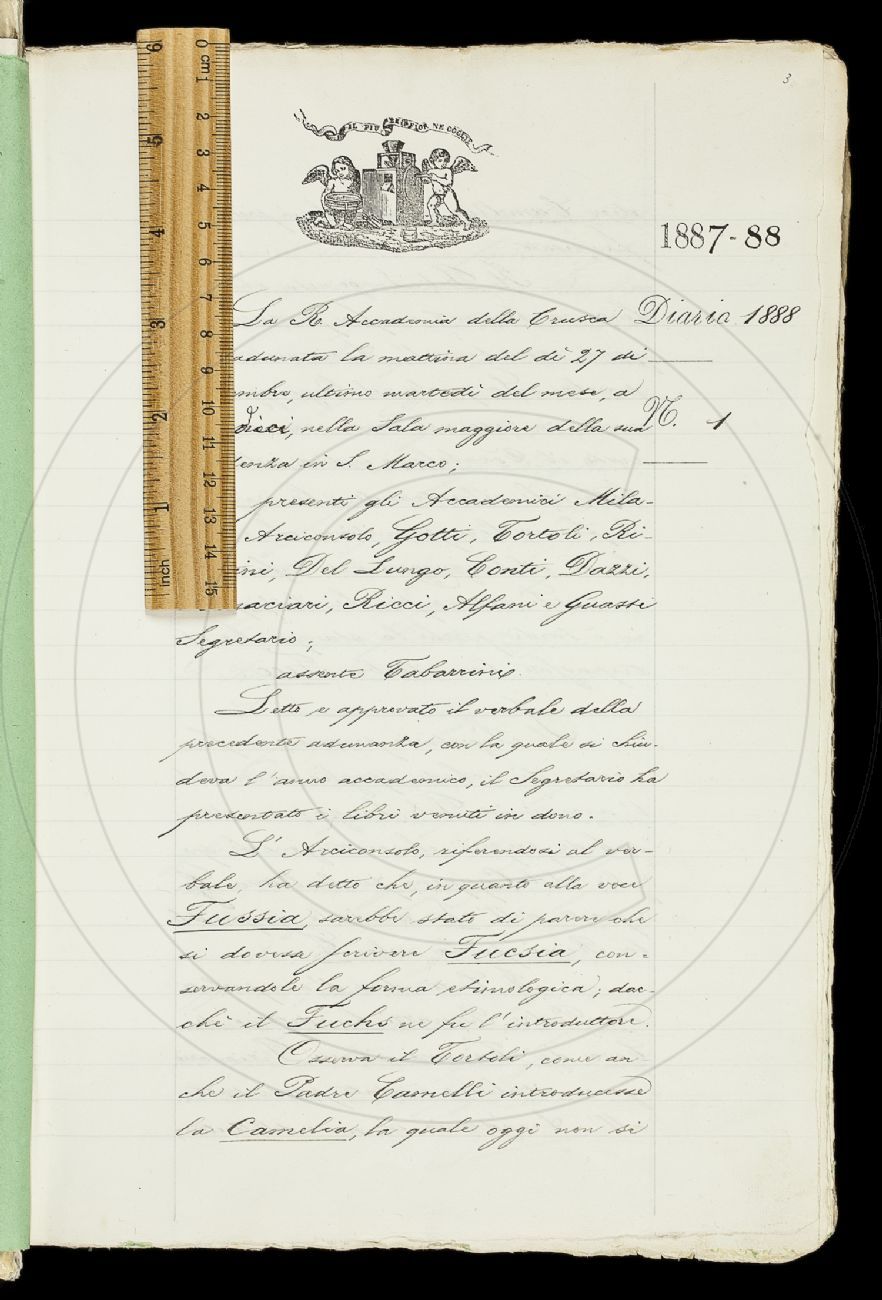 3
IL PIÙ BEL FIOR NE COGLIE
1887-88
Diario 1888
N. 1
La R. Accademia della Crusca
adunata la mattina del dì 27 di
embre, ultimo martedì del mese, a
dieci, nella Sala maggiore della sua
denza in S. Marco;
presenti gli Accademici Mila-
Arciconsolo, Gotti, Tortoli, Ri-
ini, Del Lungo, Conti, Dazzi,
naciari, Ricci, Alfani e Guasti
Segretario;
assente Tabarrini.
Letto e approvato il verbale della
precedente adunanza, con la quale si chiu-
deva l'anno accademico, il Segretario ha
presentato i libri venuti in dono.
L'Arciconsolo, riferendosi al ver-
bale, ha detto che, in quanto alla voce
Fussia, sarebbe stato di parere che
si dovesse scrivere Fucsia, con-
servandole la forma etimologica; dac-
chè il Fuchs ne fu l'introduttore.
Osserva il Tortoli, come an
che il Padre Camelli introducesse
la Camelia, la quale oggi non si
0 cm 1 2 3 4 5 6 7 8 9 10 11 12 13 14 15
inch 1 2 3 4 5 6